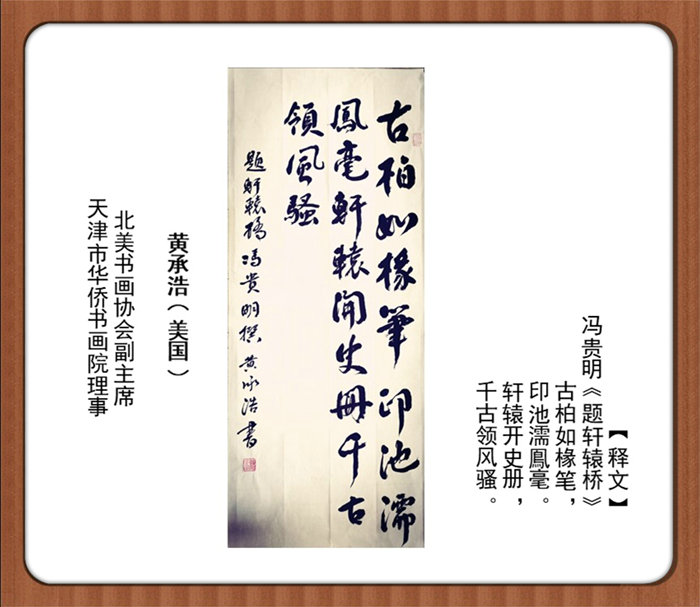 【释文】
冯贵明《题轩辕桥》
古柏如椽笔，
印池濡鳳毫。
轩辕开史册，
千古领风骚。
古柏如椽筆印池濡
鳳毫軒轅開史冊千古
領風騷
题軒轅橋冯贵明撰黄承浩書
黄承浩（美国）
北美书画协会副主席
天津市华侨书画院理事